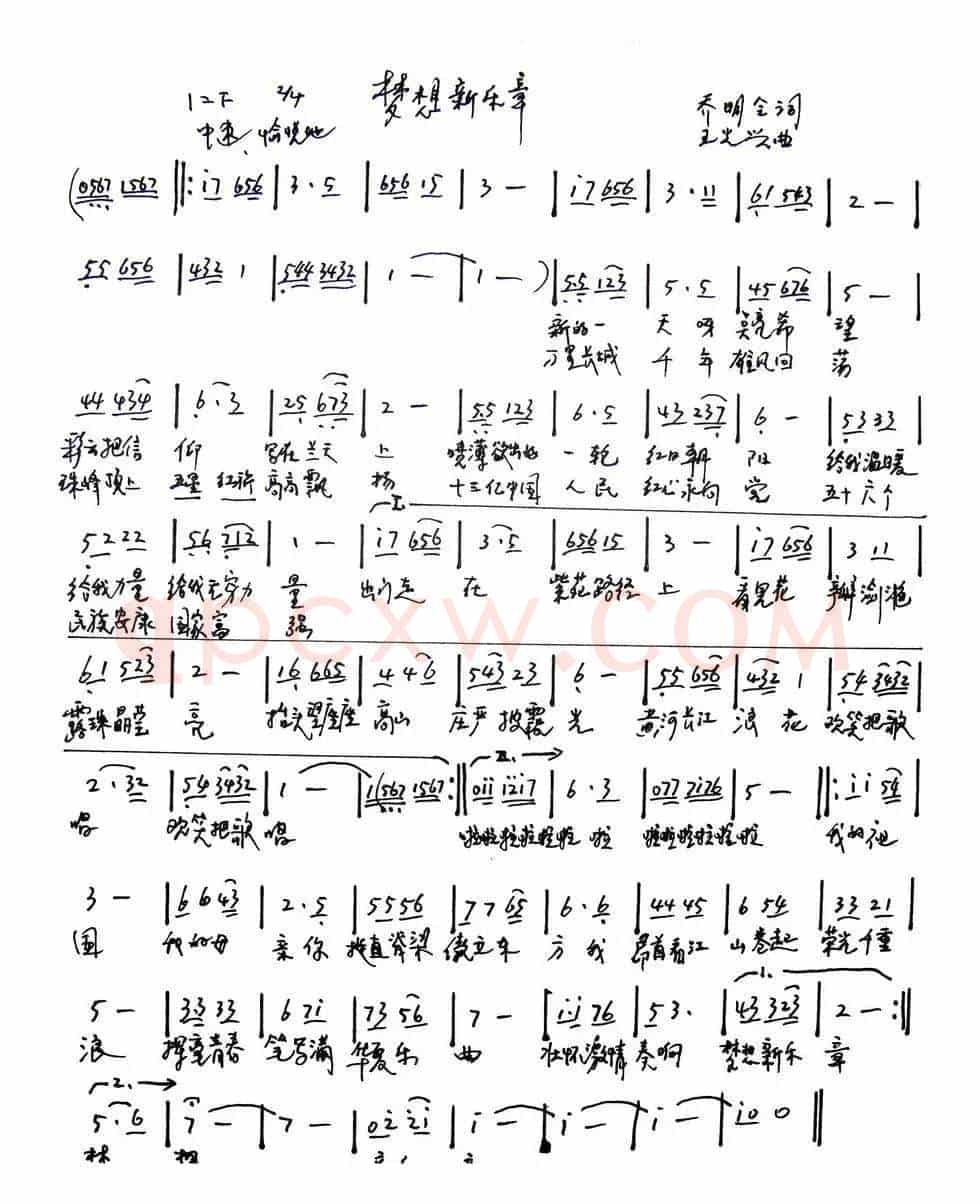 梦想新乐章
1=F 2/4
乔明全词
中速、愉悦地
王光兴曲
(0567 1567 ‖: i7 656 | 3 · 5 | 656 15 | 3 — | i7 656 | 3 · 11 | 61 543 | 2 — |
55 656 | 432 1 | 544 3432 | 1 — | 1 — ) | 55 123 | 5 · 5 | 45 676 | 5 — |
新的一 天 呀 希 望
万里长城 千 年 雄风回 荡
44 434 | 6 · 3 | 25 673 | 2 — | 55 123 | 6 · 5 | 43 237 | 6 — | 53 33
彩云把信 仰 写在兰天 上 喷薄欲出的 一 轮 红日朝 阳 给我温暖
珠峰顶上 五星 红旗 高高飘 扬 十三亿中国 人 民 红心永向 党 五十六个
I.
52 22 | 56 712 | 1 — | i7 656 | 3 · 5 | 656 15 | 3 — | i7 656 | 3 11 |
给我力量 给我无穷力 量 出门走 在 紫花路径 上 看见花 瓣
民族安康 国家富 强
qpcxw.com
61 523 | 2 — | 16 665 | 4 46 | 543 23 | 6 — | 55 656 | 432 1 | 54 3432 |
露珠晶莹 亮 抬头望座座 高山 庄严披霞 光 黄河长江 浪 花 欢笑把歌
II.
2 · 32 | 54 3432 | 1 — | 1(567 1567 :‖ 0ii i2i7 | 6 · 3 | 077 7i76 | 5 — ‖: ii 54 |
唱 欢笑把歌 唱 啦啦啦啦啦啦 啦 啦啦啦啦啦啦 我的祖
3 — | 66 43 | 2 · 5 | 55 56 | 77 65 | 6 · 6 | 44 45 | 6 54 | 33 21 |
国 我的母 亲 你 挺直脊梁 傲立东 方 我 昂首看江 山 卷起 荣光千重
1.
5 — | 33 33 | 6 7i | 73 56 | 7 — | ii 76 | 53 · | 43 323 | 2 — :‖
浪 挥毫青春 笔 写满 华夏乐 曲 壮怀激情 奏啊 梦想新乐 章
2.
5 · 6 | 7 — | 7 — | 02 2i | i — | i — | i — | i0 0 ‖